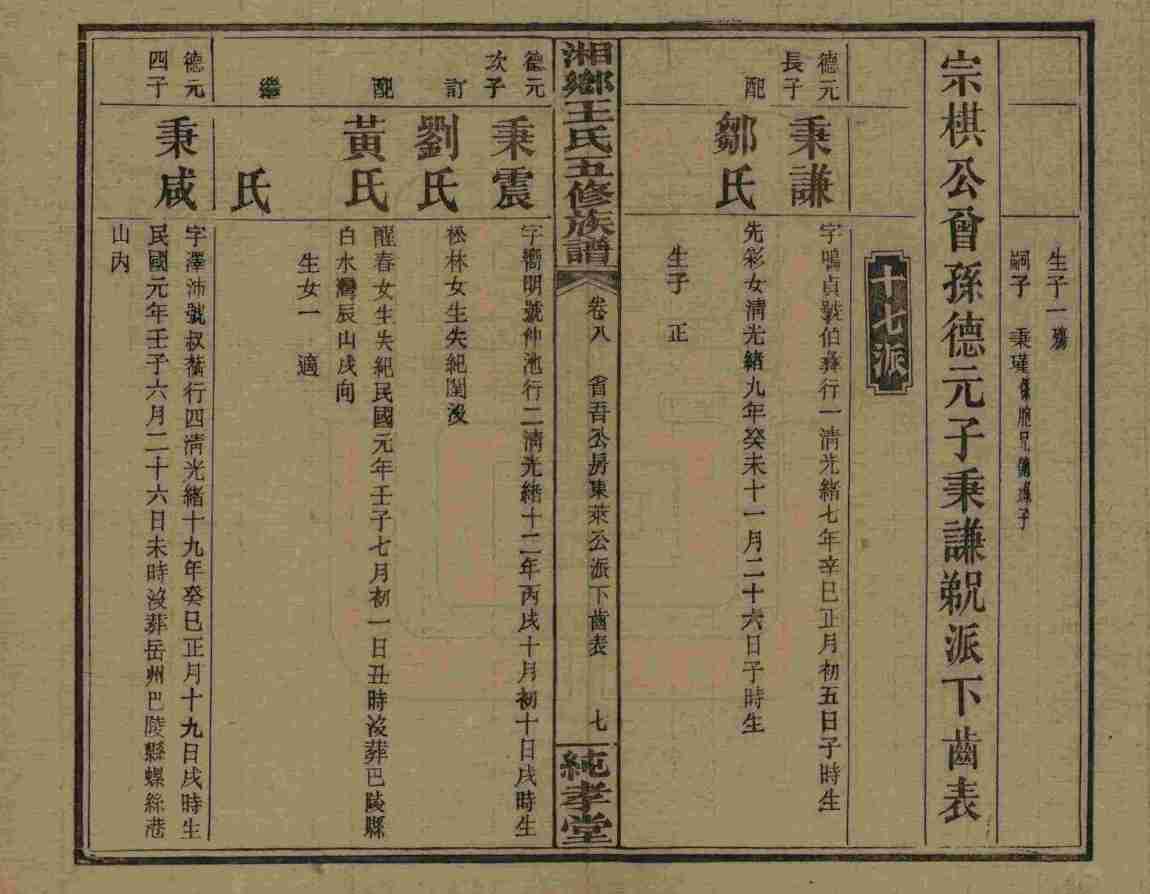 生子一殤
嗣子 秉瑾係胞兄德 子
宗棋公曾孫德元子秉謙 派下齒表
十七派
德元
長子
秉謙
字鳴貞號伯彝行一清光緒七年辛巳正月初五日子時生
配
鄒氏
先彩女清光緒九年癸未十一月二十六日子時生
生子 正
湘鄉王氏五修族譜
卷八 省吾公房東萊公派下齒表 七
純孝堂
德元
次子
秉震
字嚮明號仲池行二清光緒十二年丙戌十月初十日戌時生
訂
劉氏
松林女生失紀閨沒
配
黃氏
醒春女生失紀民國元年壬子七月初一日丑時沒葬巴陵縣
白水灣辰山戌向
生女一 適
繼
氏
德元
四子
秉咸
字澤沛號叔 行四清光緒十九年癸巳正月十九日戌時生
民國元年壬子六月二十六日未時沒葬岳州巴陵縣螺絲港
山內